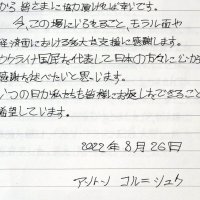 から 皆さまに協力頂ければ幸いです。
今、この場にいるもること、モラル面や
経済面における絶大な支援に感謝します。
ウクライナ国民を代表して日本の方々に心から
感謝を述べたいと思います。
いつの日か私たちも皆様にお返しできること
希望しています。
2022年8月26日
アントン コルニシュク